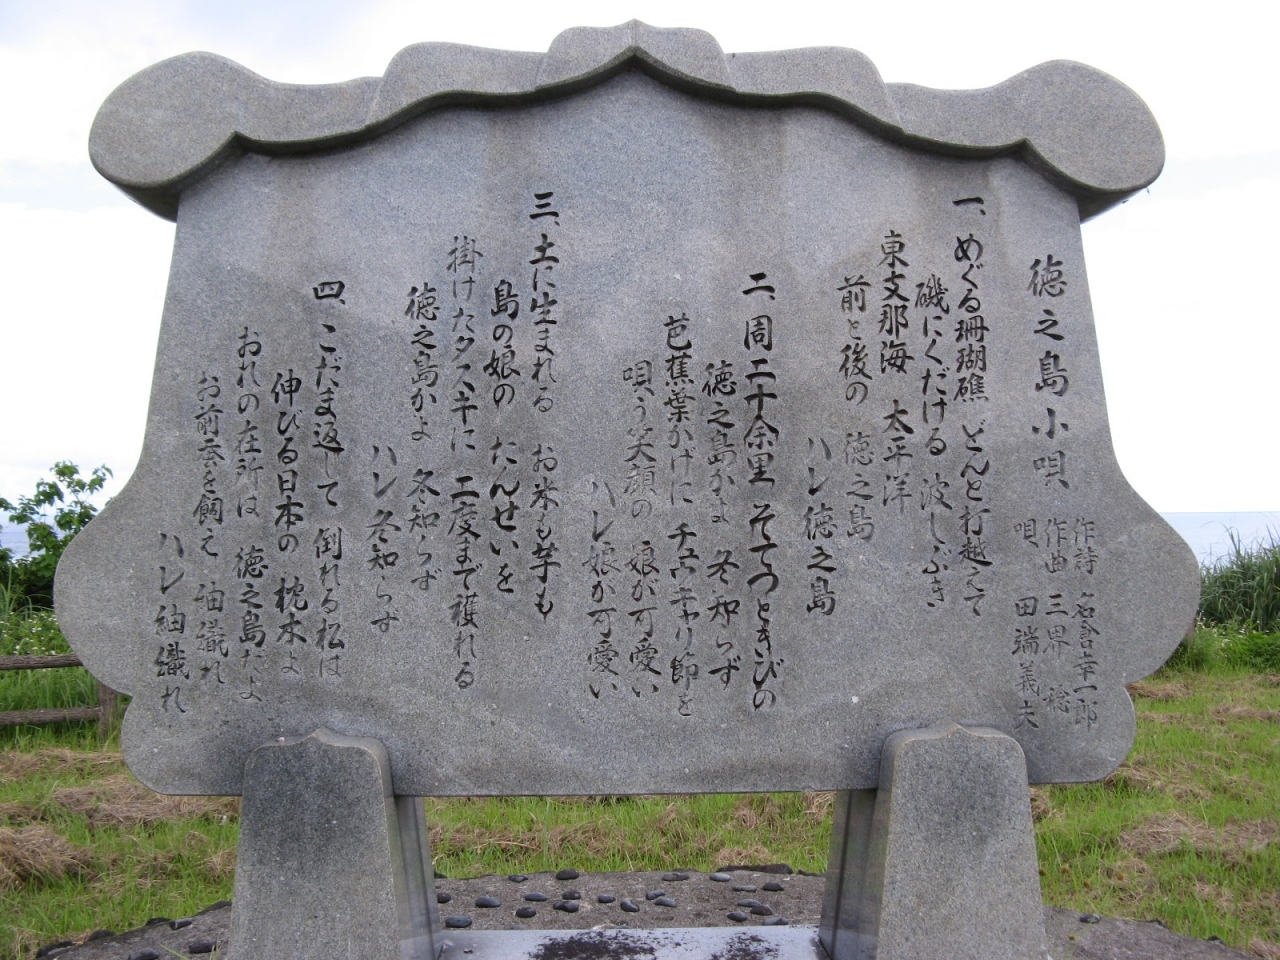 徳之島小唄
作詩 名倉幸一郎
作曲 三界 稔
唄 田端義夫
一、めぐる珊瑚礁 どんと打越えて
磯にくだける 波しぶき
東支那海 太平洋
前と後の 徳之島
ハレ徳之島
二、周二十余里 そてつときびの
徳之島かよ 冬知らず
芭蕉葉かげに チュッキャリ節を
唄う笑顔の 娘が可愛い
ハレ娘が可愛い
三、土に生まれる お米も芋も
島の娘の たんせいを
掛けたタスキに 二度まで穫れる
徳之島かよ 冬知らず
ハレ冬知らず
四、こだま返して 倒れる松は
伸びる日本の 枕木よ
おれの在所は 徳之島だよ
お前蚕を飼え 紬織れ
ハレ紬織れ